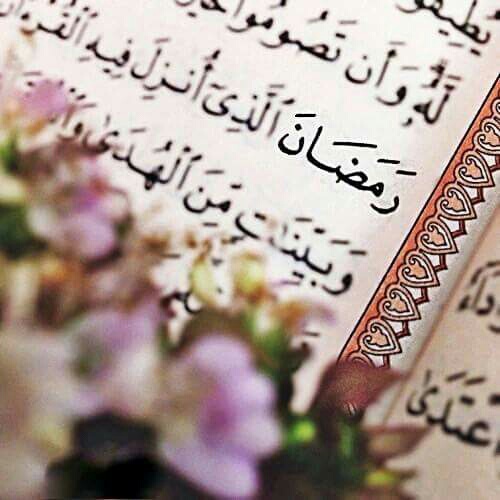 يُطِيقُو
لَّهُۥ وَأَن تَصُومُوا۟ خَيْر
رَمَضَانَ ٱلَّذِىٓ أُنزِلَ فِيهِ ٱلْقُرْءَان
وَبَيِّنَـٰتٍ مِّنَ ٱلْهُدَىٰ وَٱلْ
ٱعْتَدَىٰ